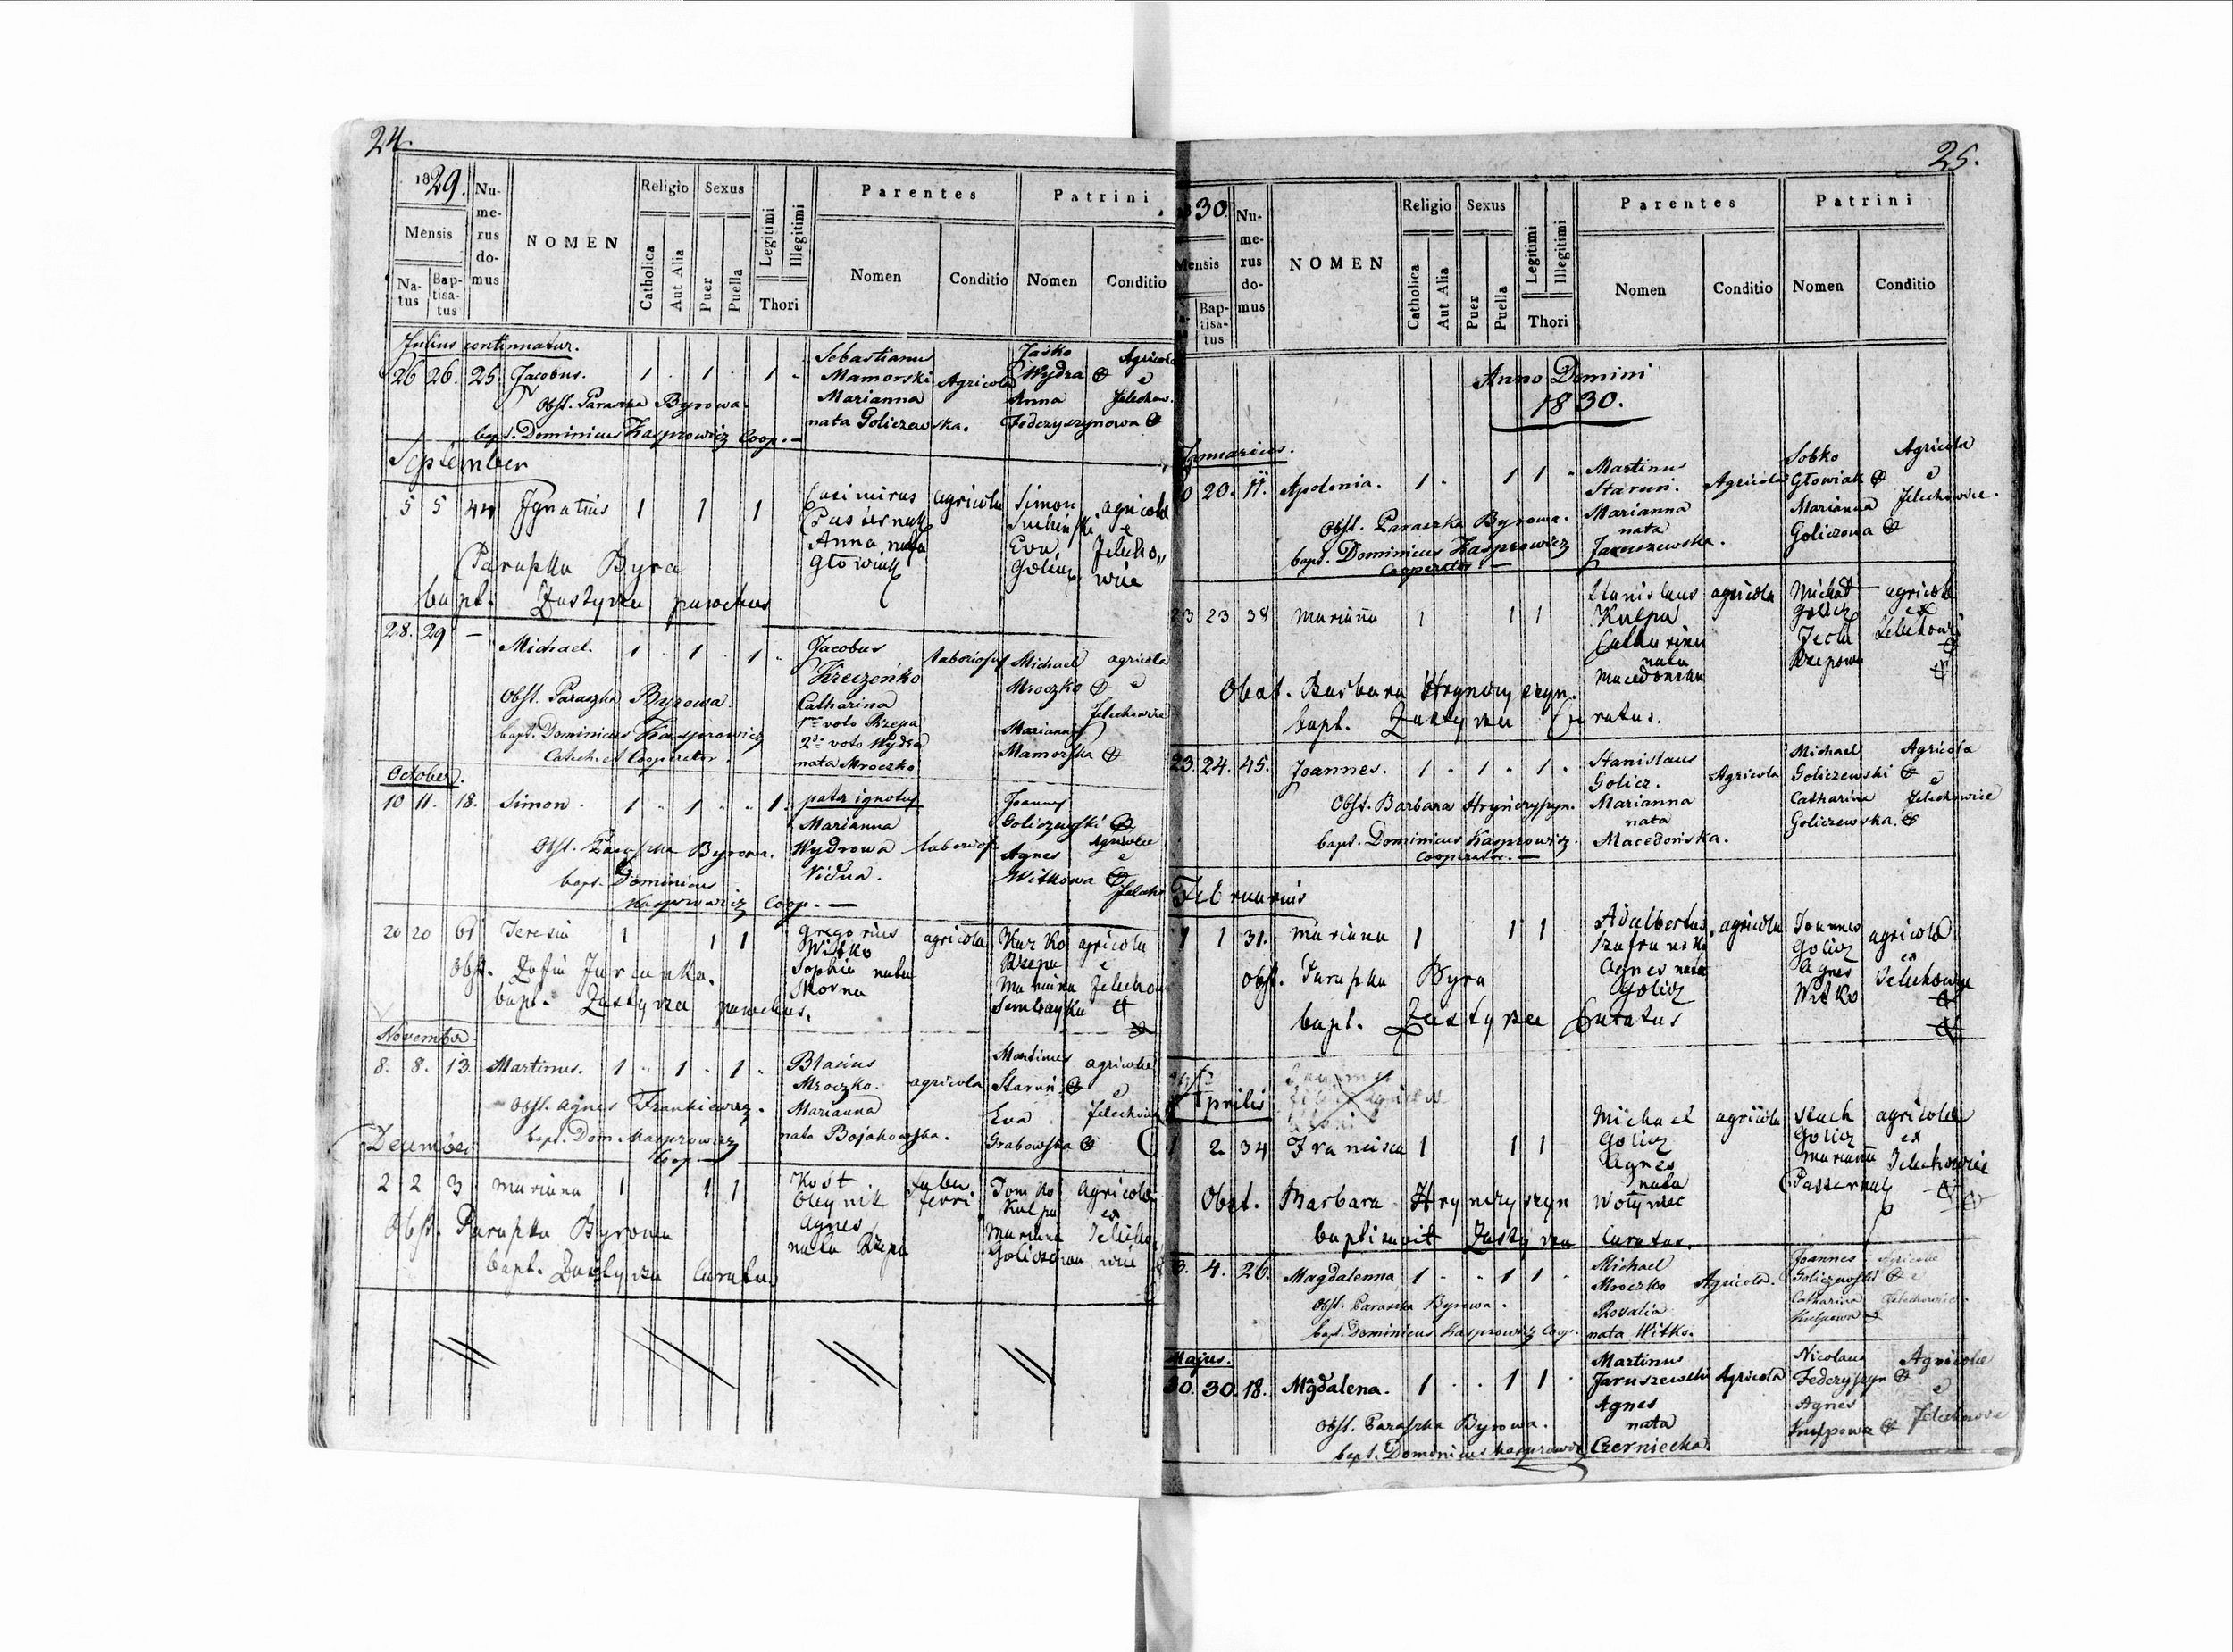 24.
1829.
Mensis
Na-
tus
Bap-
tisa-
tus
Nu-
me-
rus
do-
mus
NOMEN
Religio
Catholica
Aut Alia
Sexus
Puer
Puella
Legitimi
Illegitimi
Thori
Parentes
Nomen
Conditio
Patrini
Nomen
Conditio
Julius continuatur.
26 26. 25. Jacobus. 1 . 1 . 1 .
Sebastianus
Mamorski
Marianna
nata Goliczewska.
Agricola
Jaśko
Wydra
Anna
Fedczyszynowa
Agricola
e
Jelechow.
Obst. Paraszka Byrowa.
bapt. Dominicus Kasprowicz Coop. —
September
5 5 44 Ignatius 1 1 1
Casimirus
Pasternak
Anna nata
Głowiak
agricola
Simon
Suchiński
Eva
Golicz
agricolae
e
Jelecho„
wice
Paraszka Byra
bapt. Zastyrza parochus
28. 29 — Michael. 1 . 1 . 1 .
Jacobus
Kreczeńko
Catharina
1mo voto Rzepa
2do voto Wydra
nata Mroczko
laboriosus
Michael
Mroczko
Marianna
Mamorska
agricolae
e
Jelechowice
Obst. Paraszka Byrowa.
bapt. Dominicus Kasprowicz
Catech. et Cooperator.
October.
10 11. 18. Simon. 1 . 1 . . 1.
pater ignotus
Marianna
Wydrowa
Vidua.
laborios.
Joannes
Goliczewski
Agnes
Witkowa
Agricolae
e
Jelecho
Obst. Paraszka Byrowa.
bapt. Dominicus
Kasprowicz Coop. —
20 20 61 Teresia 1 1 1
Gregorius
Witko
Sophia nata
Skorna
agricola
Rzepa
Marianna
agricolae
e
Jelechow
Obst. Zofia
bapt. Zastyrza parochus.
November.
8. 8. 13. Martinus. 1 . 1 . 1 .
Blasius
Mroczko.
Marianna
nata Bojakowska.
agricola
Martinus
Staruń
Eva
Grabowska
agricolae
e
Jelechowice
Obst. Agnes Frankiewicz.
bapt. Dom. Kasprowicz
Coop. —
December
2 2 3 Mariana 1 1 1
Kost
Oleynik
Agnes
nata Rzepa
faber
ferri
Tomko
Kulpa
Mariana
Goliczowa
agricolae
ex
Jelecho„
wice
Obst. Paraszka Byrowa
bapt. Zastyrza Curatus
25.
1830
Mensis
Bap-
tisa-
tus
Nu-
me-
rus
do-
mus
NOMEN
Religio
Catholica
Aut Alia
Sexus
Puer
Puella
Legitimi
Illegitimi
Thori
Parentes
Nomen
Conditio
Patrini
Nomen
Conditio
Anno Domini
1830.
Januarius.
20. 11. Apolonia. 1 . 1 1 .
Martinus
Staruń.
Marianna
nata
Jaruszewska.
Agricola
Sobko
Głowiak
Marianna
Goliczowa
Agricola
e
Jelechowice.
Obst. Paraszka Byrowa.
bapt. Dominicus Kasprowicz
Cooperator —
23 23 38 Marianna 1 1 1
Stanislaus
Kulpa
Catharina
nata
Macedonska
agricola
Michał
Golicz
Tecla
Rzepowa
agricolae
ex
Jelechowice
Obst. Barbara Hrynczyszyn.
bapt. Zastyrza Curatus.
23. 24. 45. Joannes. 1 . 1 . 1 .
Stanislaus
Golicz.
Marianna
nata
Macedońska.
Agricola
Michael
Goliczewski
Catharina
Goliczewska.
Agricola
e
Jelechowice
Obst. Barbara Hryńczyszyn.
bapt. Dominicus Kasprowicz.
Cooperator. —
Februarius
1 1 31. Mariana 1 1 1
Adalbertus
Szafranski
Agnes nata
Golicz
agricola
Joannes
Golicz
Agnes
Witko
agricolae
ex
Jelechowice
Obst. Paraszka Byra
bapt. Zastyrza Curatus
Aprilis
1 2 34 Francisca 1 1 1
Michael
Golicz
Agnes
nata
Wołyniec
agricola
Stach
Golicz
Marianna
Pasternak
agricolae
ex
Jelechowice
Obst. Barbara Hrynczyszyn
baptisavit Zastyrza Curatus.
3. 4. 26. Magdalenna 1 . . 1 1 .
Michael
Mroczko
Rosalia
nata Witko.
Agricola.
Joannes
Goliczewski
Catharina
Kulpowa
Agricolae
e
Jelechowice.
Obst. Paraszka Byrowa.
bapt. Dominicus Kasprowicz Coop.
Majus.
30. 30. 18. Magdalena. 1 . . 1 1 .
Martinus
Jaruszewski
Agnes
nata
Czerniecka.
Agricola
Nicolaus
Fedczyszyn
Agnes
Kulpowa
Agricolae
e
Jelechowice
Obst. Paraszka Byrowa.
bapt. Dominicus Kasprowicz